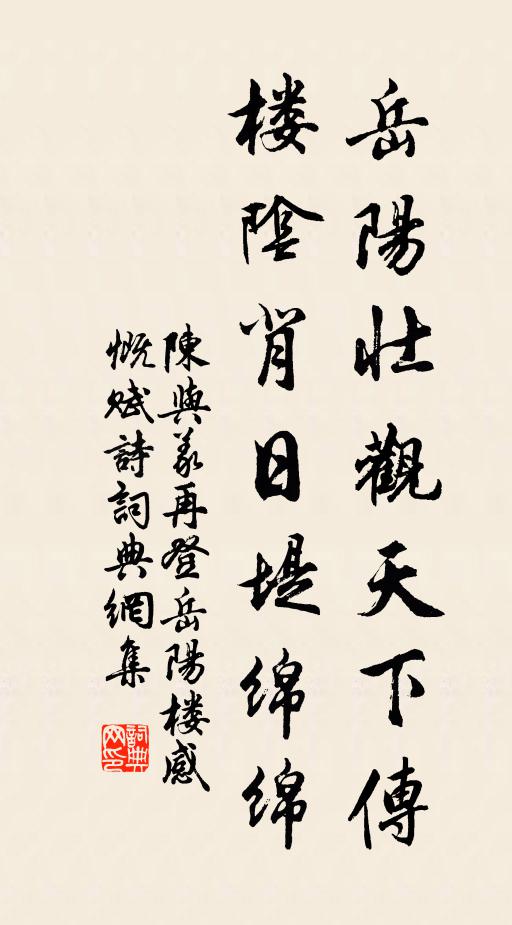 岳陽壯觀天下傳
楼陰背日堤綿綿
陳與義再登岳陽楼感
慨賦詩詞典網集
詞典
网印